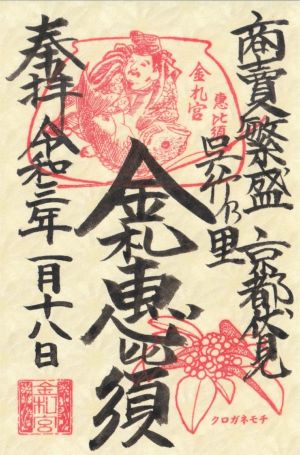 商賣繁盛 京都伏見
呉竹乃里
金札宮
恵比須
金札恵比須
奉拝 令和三年 一月十八日
金札宮
クロガネモチ